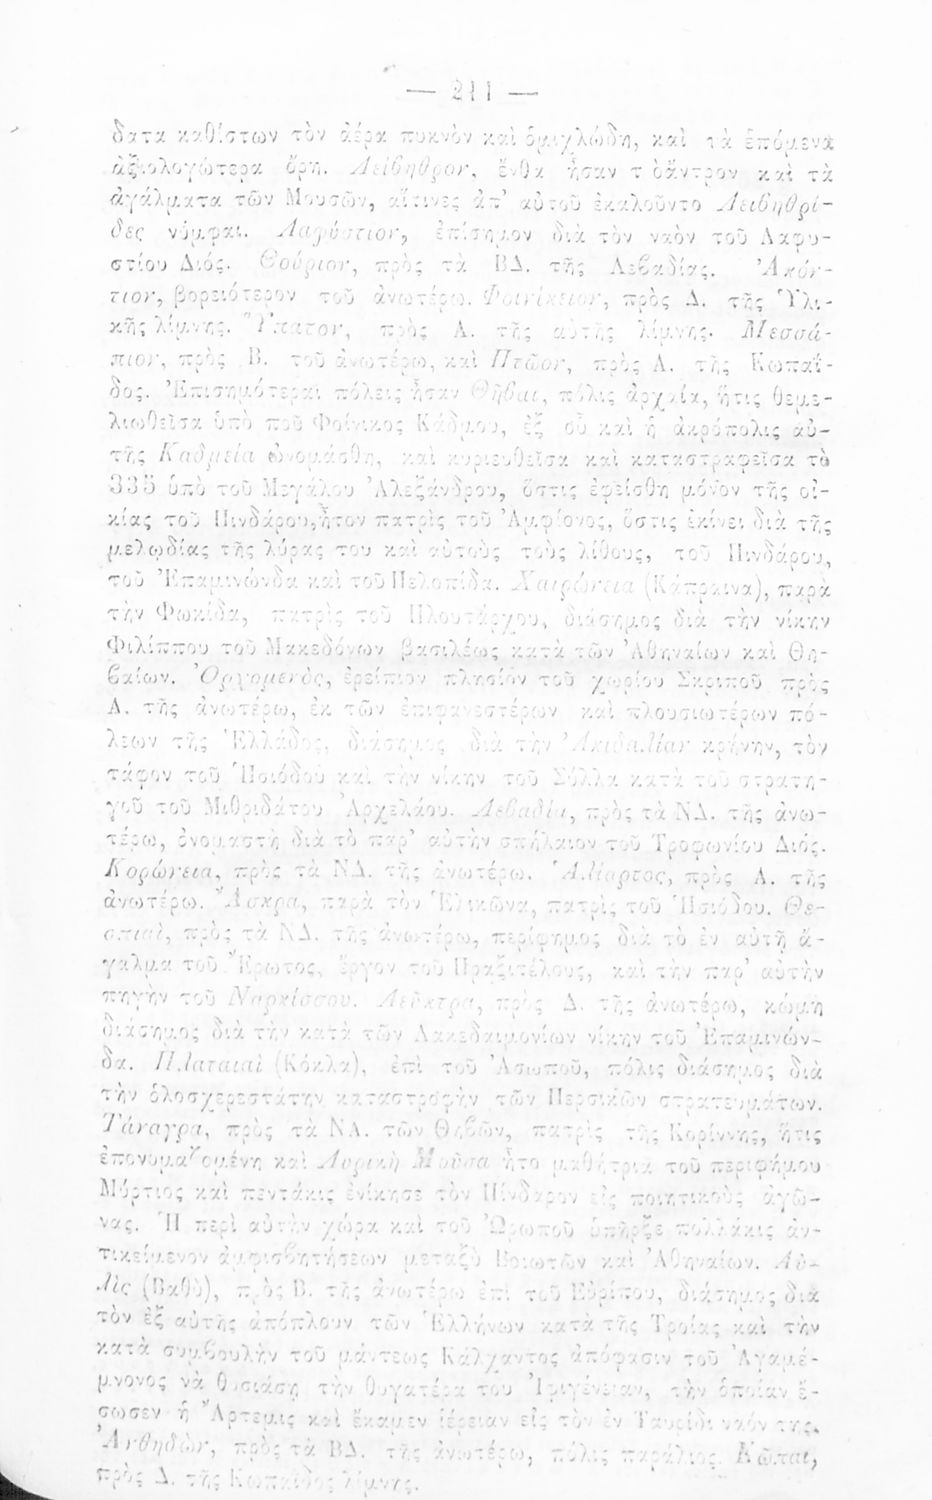 — 211 —
δατα καθίστων τὸν ἀέρα πυκνὸν καὶ ὁμιχλώδη, καὶ τὰ ἑπόμενα
ἀξιολογώτερα ὄρη. Λείβηθρον, ἔνθα ἦσαν τ ὸἄντρον καὶ τὰ
ἀγάλματα τῶν Μουσῶν, αἵτινες ἀπ' αὐτοῦ ἐκαλοῦντο Λειβηθρί-
δες νύμφαι. Λαφύστιον, ἐπίσημον διὰ τὸν ναὸν τοῦ Λαφυ-
στίου Διός. Θούριον, πρὸς τὰ ΒΔ. τῆς Λεβαδίας. Ἀκόν-
τιον, βορειότερον τοῦ ἀνωτέρω. Φοινίκειον, πρὸς Δ. τῆς Ὑλι-
κῆς λίμνης. Ὕπατον, πρὸς Α. τῆς αὐτῆς λίμνης. Μεσσά-
πιον, πρὸς Β. τοῦ ἀνωτέρω, καὶ Πτῶον, πρὸς Α. τῆς Κωπαΐ-
δος. Ἐπισημότεραι πόλεις ἦσαν Θῆβαι, πόλις ἀρχαία, ἥτις θεμε-
λιωθεῖσα ὑπὸ ποῦ Φοίνικος Κάδμου, ἐξ οὗ καὶ ἡ ἀκρόπολις αὐ-
τῆς Καδμεία ὠνομάσθη, καὶ κυριευθεῖσα καὶ καταστραφεῖσα τὸ
335 ὑπὸ τοῦ Μεγάλου Ἀλεξάνδρου, ὅστις ἐφείσθη μόνον τῆς οἰ-
κίας τοῦ Πινδάρου,ἦτον πατρὶς τοῦ Ἀμφίονος, ὅστις ἐκίνει διὰ τῆς
μελῳδίας τῆς λύρας του καὶ αὐτοὺς τοὺς λίθους, τοῦ Πινδάρου,
τοῦ Ἐπαμινώνδα καὶ τοῦ Πελοπίδα. Χαιρώνεια (Κάπραινα), παρὰ
τὴν Φωκίδα, πατρὶς τοῦ Πλουτάρχου, διάσημος διὰ τὴν νίκην
Φιλίππου τοῦ Μακεδόνων βασιλέως κατὰ τῶν Ἀθηναίων καὶ Θη-
βαίων. Ὀρχομενὸς, ἐρείπιον πλησίον τοῦ χωρίου Σκριποῦ πρὸς
Α. τῆς ἀνωτέρω, ἐκ τῶν ἐπιφανεστέρων καὶ πλουσιωτέρων πό-
λεων τῆς Ἑλλάδος, διάσημος διὰ τὴν Ἀκιδαλίαν κρήνην, τὸν
τάφον τοῦ Ἡσιόδου καὶ τὴν νίκην τοῦ Σύλλα κατὰ τοῦ στρατη-
γοῦ τοῦ Μιθριδάτου Ἀρχελάου. Λεβαδία, πρὸς τὰ ΝΔ. τῆς ἀνω-
τέρω, ὀνομαστὴ διὰ τὸ παρ' αὐτὴν σπήλαιον τοῦ Τροφωνίου Διός.
Κορώνεια, πρὸς τὰ ΝΔ. τῆς ἀνωτέρω. Ἁλίαρτος, πρὸς Α. τῆς
ἀνωτέρω. Ἄσκρα, παρὰ τὸν Ἑλικῶνα, πατρὶς τοῦ Ἡσιόδου. Θε-
σπιαὶ, πρὸς τὰ ΝΔ. τῆς ἀνωτέρω, περίφημος διὰ τὸ ἐν αὐτῇ ἄ-
γαλμα τοῦ Ἔρωτος, ἔργον τοῦ Πραξιτέλους, καὶ τὴν παρ' αὐτὴν
πηγὴν τοῦ Ναρκίσσου. Λεῦκτρα, πρὸς Δ. τῆς ἀνωτέρω, κώμη
διάσημος διὰ τὴν κατὰ τῶν Λακεδαιμονίων νίκην τοῦ Ἐπαμινών-
δα. Πλαταιαὶ (Κόκλα), ἐπὶ τοῦ Ἀσωποῦ, πόλις διάσημος διὰ
τὴν ὁλοσχερεστάτην καταστροφὴν τῶν Περσικῶν στρατευμάτων.
Τάναγρα, πρὸς τὰ ΝΑ. τῶν Θηβῶν, πατρὶς τῆς Κορίννης, ἥτις
ἐπονομαζομένη καὶ Λυρικὴ Μοῦσα ἦτο μαθήτρια τοῦ περιφήμου
Μύρτιος καὶ πεντάκις ἐνίκησε τὸν Πίνδαρον εἰς ποιητικοὺς ἀγῶ-
νας. Ἡ περὶ αὐτὴν χώρα καὶ τοῦ Ὠρωποῦ ὑπῆρξε πολλάκις ἀν-
τικείμενον ἀμφισβητήσεων μεταξὺ Βοιωτῶν καὶ Ἀθηναίων. Αὐ-
λὶς (Βαθὺ), πρὸς Β. τῆς ἀνωτέρω ἐπὶ τοῦ Εὐρίπου, διάσημος διὰ
τὸν ἐξ αὐτῆς ἀπόπλουν τῶν Ἑλλήνων κατὰ τῆς Τροίας καὶ τὴν
κατὰ συμβουλὴν τοῦ μάντεως Κάλχαντος ἀπόφασιν τοῦ Ἀγαμέ-
μνονος νὰ θυσιάσῃ τὴν θυγατέρα του Ἰφιγένειαν, τὴν ὁποίαν ἔ-
σωσεν ἡ Ἄρτεμις καὶ ἔκαμεν ἱέρειαν εἰς τὸν ἐν Ταυρίδι ναόν της.
Ἀνθηδὼν, πρὸς τὰ ΒΔ. τῆς ἀνωτέρω, πόλις παράλιος. Κῶπαι,
πρὸς Δ. τῆς Κωπαΐδος λίμνης.